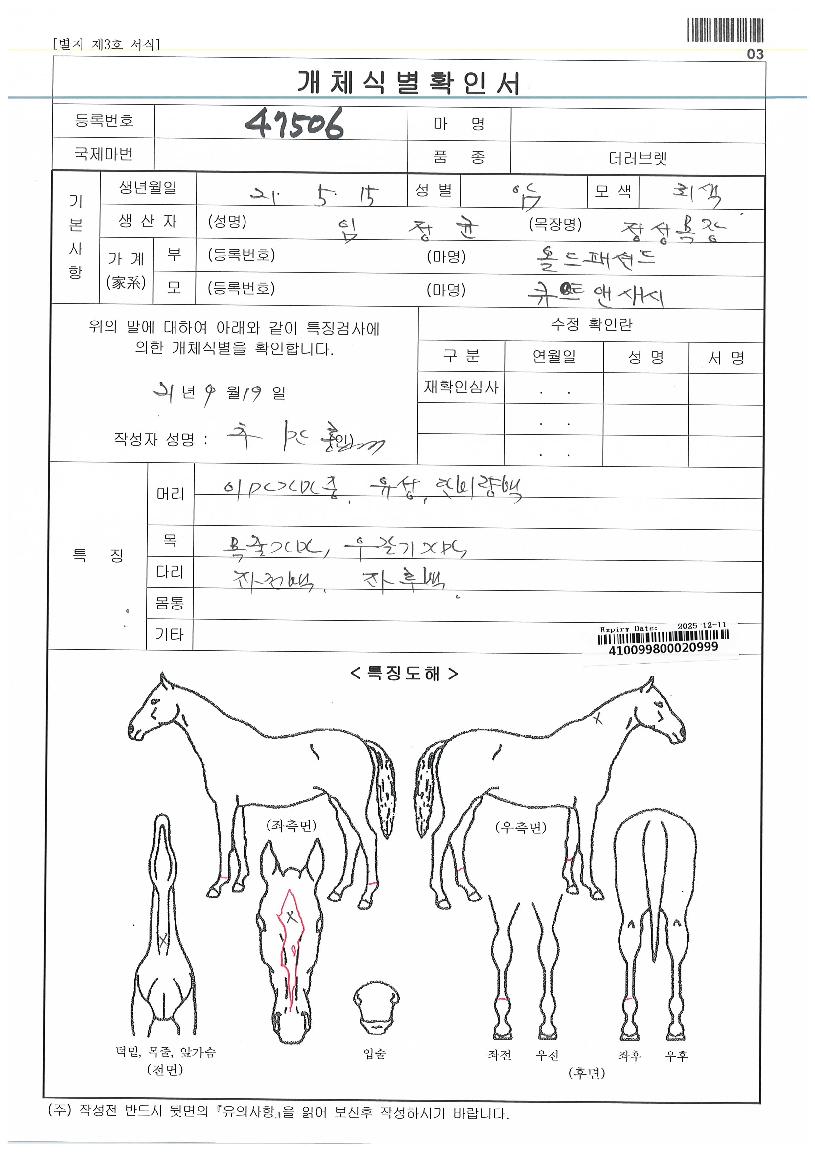 [별지 제3호 서식]
03
개체식별확인서
등록번호 47506 마 명
국제마번 품 종 더러브렛
기본사항
생년월일 21. 5. 15 성 별 암 모 색 회색
생 산 자 (성명) 임 정 균 (목장명) 장성목장
가 계 (家系)
부 (등록번호) (마명) 올드패션드
모 (등록번호) (마명) 큐트앤새시
위의 말에 대하여 아래와 같이 특징검사에
의한 개체식별을 확인합니다.
21년 9월 19일
작성자 성명 : (인)
수정 확인란
구 분 연월일 성 명 서 명
재확인심사 . .
. .
. .
특 징
머리
목
다리 좌전백, 좌후백.
몸통
기타
Expiry Date: 2025-12-11
410099800020999
< 특징도해 >
(좌측면) (우측면)
턱밑, 목줄, 앞가슴
(전면)
입술
좌전 우전 좌후 우후
(후면)
(주) 작성전 반드시 뒷면의 『유의사항』을 읽어 보신후 작성하시기 바랍니다.